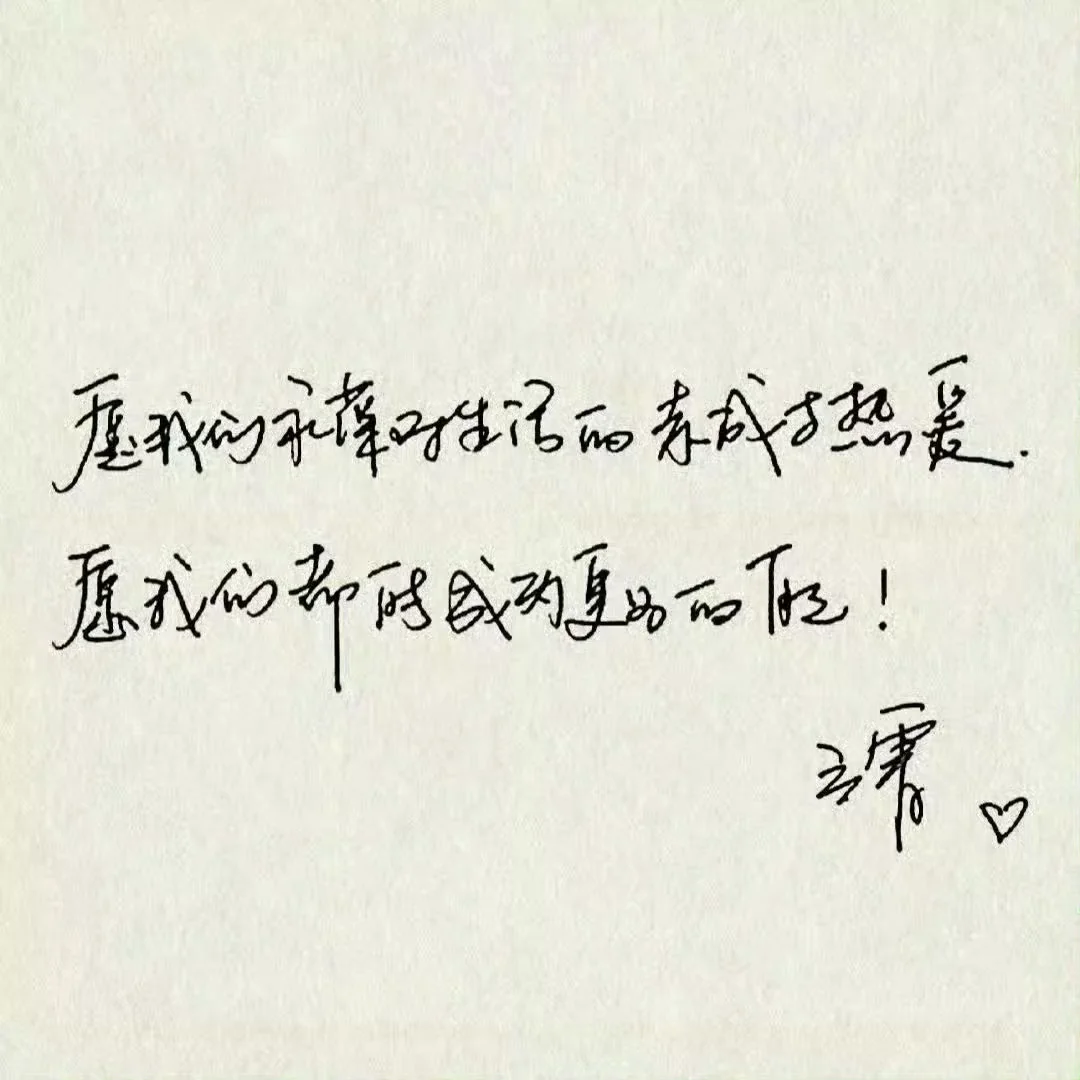 愿我们永葆对生活的赤诚与热爱.
愿我们都能成为更好的自己!